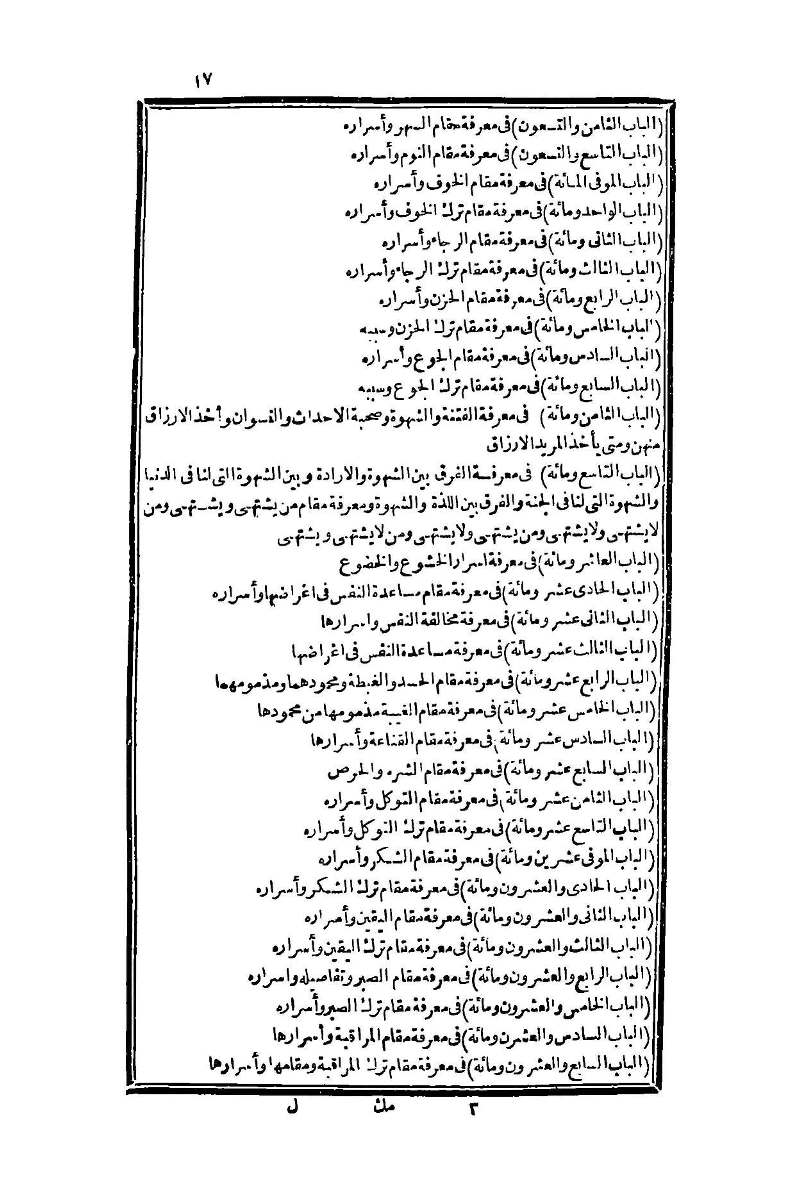 ١٧
(الباب الثامن والتسعون) فى معرفة مقام السهر وأسراره
(الباب التاسع والتسعون) فى معرفة مقام النوم وأسراره
(الباب الموفى المائة) فى معرفة مقام الخوف وأسراره
(الباب الواحد ومائة) فى معرفة مقام ترك الخوف وأسراره
(الباب الثانى ومائة) فى معرفة مقام الرجاء وأسراره
(الباب الثالث ومائة) فى معرفة مقام ترك الرجاء وأسراره
(الباب الرابع ومائة) فى معرفة مقام الحزن وأسراره
(الباب الخامس ومائة) فى معرفة مقام ترك الحزن وسببه
(الباب السادس ومائة) فى معرفة مقام الجوع وأسراره
(الباب السابع ومائة) فى معرفة مقام ترك الجوع وسببه
(الباب الثامن ومائة) فى معرفة الفتنة والشهوة وصحبة الاحداث والنسوان وأخذ الارزاق
منهن ومتى يأخذ المريد الارزاق
(الباب التاسع ومائة) فى معرفة الفرق بين الشهوة والارادة وبين الشهوة التى لنا فى الدنيا
والشهوة التى لنا فى الجنة والفرق بين اللذة والشهوة ومعرفة مقام من يشتهى ويشتهى ومن
لا يشتهى ولا يشتهى ومن يشتهى ولا يشتهى ومن لا يشتهى ويشتهى
(الباب العاشر ومائة) فى معرفة اسرار الخشوع والخضوع
(الباب الحادى عشر ومائة) فى معرفة مقام مساعدة النفس فى اغراضها وأسراره
(الباب الثانى عشر ومائة) فى معرفة مخالفة النفس واسرارها
(الباب الثالث عشر ومائة) فى معرفة مساعدة النفس فى اغراضها
(الباب الرابع عشر ومائة) فى معرفة مقام الحسد والغبطة ومحمودهما ومذمومهما
(الباب الخامس عشر ومائة) فى معرفة مقام الغيبة مذمومها من محمودها
(الباب السادس عشر ومائة) فى معرفة مقام القناعة وأسرارها
(الباب السابع عشر ومائة) فى معرفة مقام الشره والحرص
(الباب الثامن عشر ومائة) فى معرفة مقام التوكل وأسراره
(الباب التاسع عشر ومائة) فى معرفة مقام ترك التوكل وأسراره
(الباب الموفى عشرين ومائة) فى معرفة مقام الشكر وأسراره
(الباب الحادى والعشرون ومائة) فى معرفة مقام ترك الشكر وأسراره
(الباب الثانى والعشرون ومائة) فى معرفة مقام اليقين وأسراره
(الباب الثالث والعشرون ومائة) فى معرفة مقام ترك اليقين وأسراره
(الباب الرابع والعشرون ومائة) فى معرفة مقام الصبر وتفاصيله واسراره
(الباب الخامس والعشرون ومائة) فى معرفة مقام ترك الصبر وأسراره
(الباب السادس والعشرن ومائة) فى معرفة مقام المراقبة وأسرارها
(الباب السابع والعشرون ومائة) فى معرفة مقام ترك المراقبة ومقامها وأسرارها
٣ مك ل